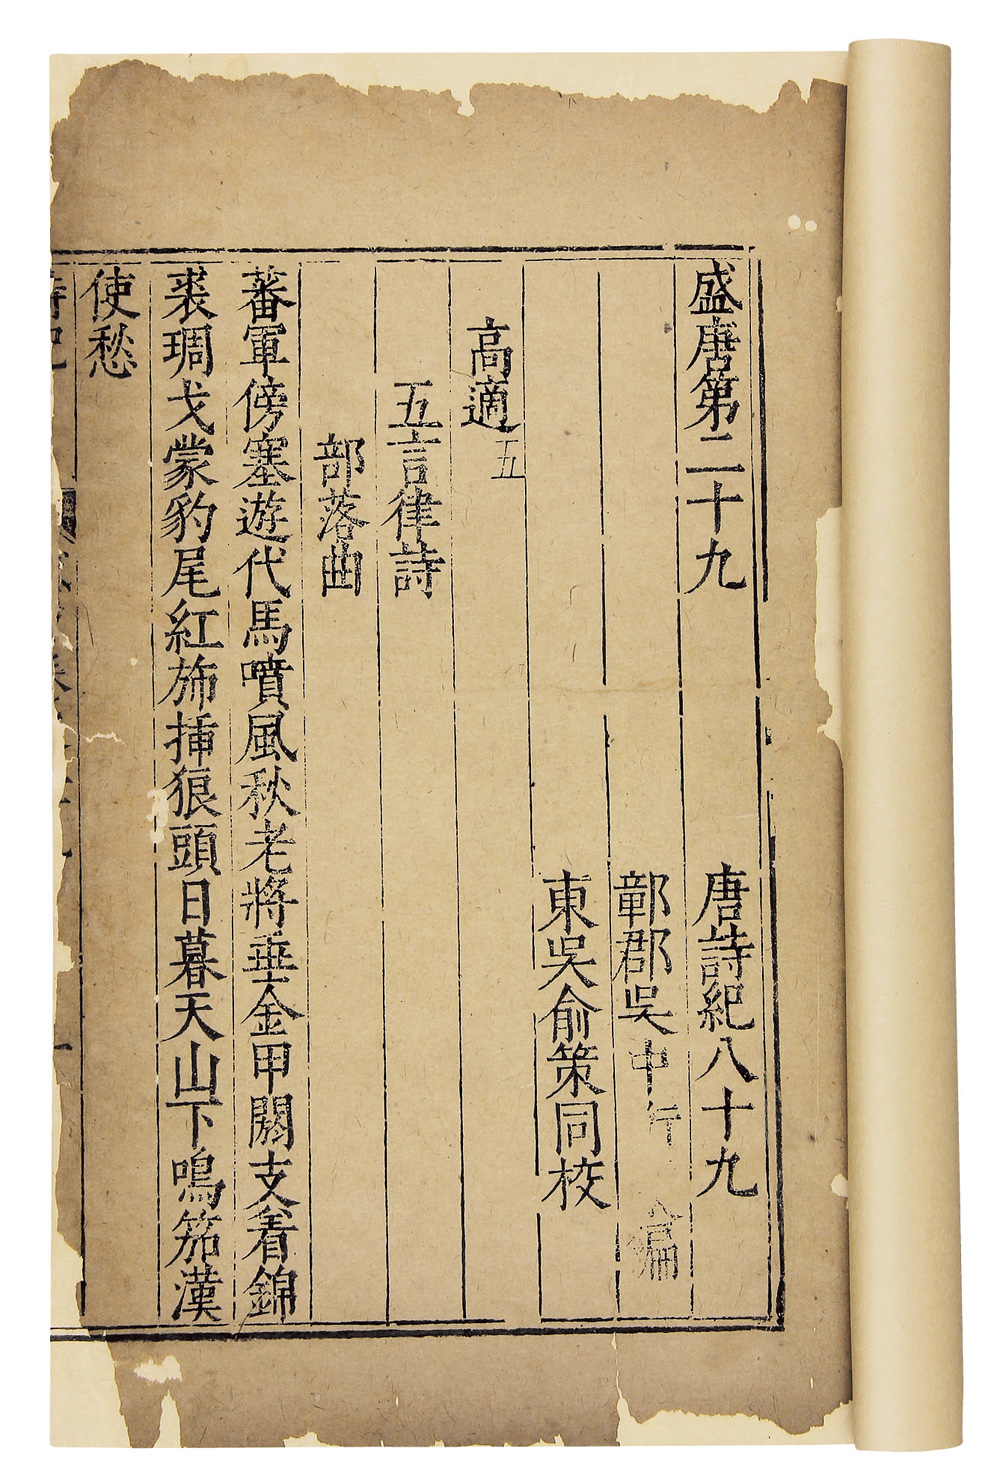 盛唐第二十九　唐詩紀八十九
鄣郡吳中行編
東吳俞策同校
高適五
五言律詩
部落曲
蕃軍傍塞遊代馬噴風秋老將垂金甲閼支着錦
裘琱戈蒙豹尾紅斾挿狼頭日暮天山下鳴笳漢
使愁